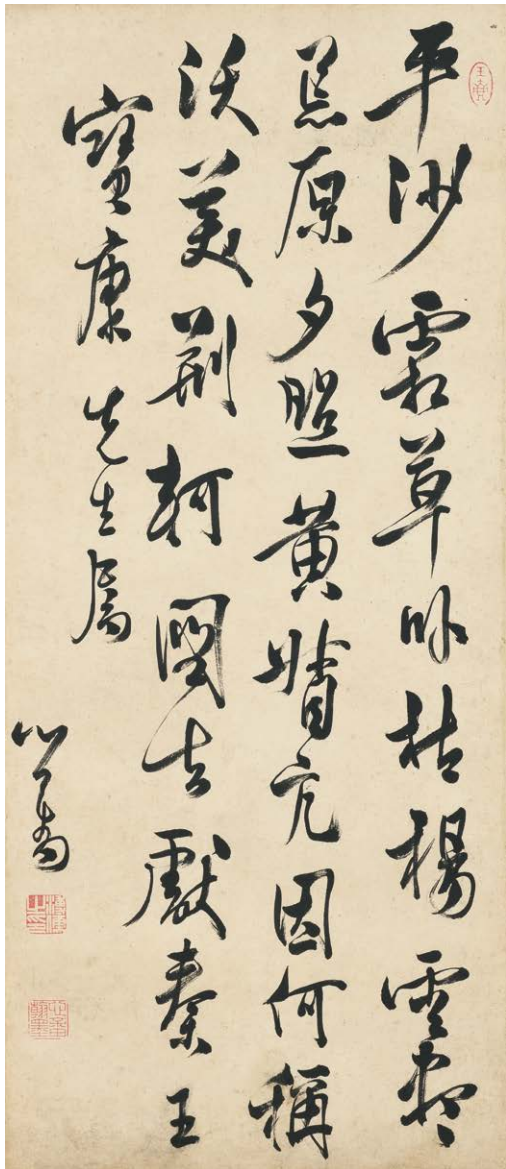 平沙霜草卧枯楊雲盡
原夕照黃督亢因何稱
沃美荊軻圖去獻秦王
寶康先生屬
心畬